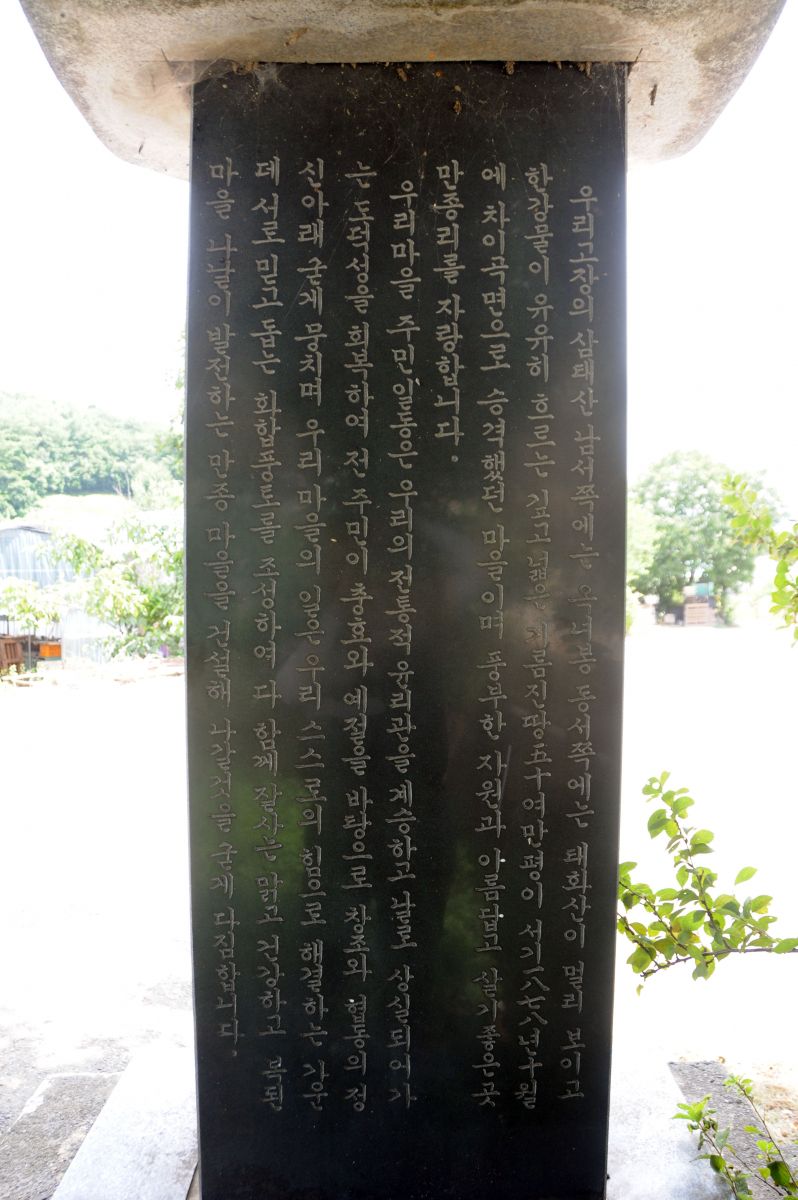 우리고장의 삼태산 남서쪽에는 옥녀봉 동서쪽에는 태화산이 멀리 보이고
한강물이 유유히 흐르는 깊고 넓은 기름진땅五十여만평이 서기一八七八년十월
에 차이곡면으로 승격했던 마을이며 풍부한 자원과 아름답고 살기좋은곳
만종리를 자랑합니다.
우리마을 주민일동은 우리의 전통적 윤리관을 계승하고 날로 상실되어가
는 도덕성을 회복하여 전 주민이 충효와 예절을 바탕으로 창조와 협동의 정
신아래 굳게 뭉치며 우리 마을의 일은 우리 스스로의 힘으로 해결하는 가운
데 서로 믿고 돕는 화합풍토를 조성하여 다 함께 잘사는 맑고 건강하고 복된
마을 나날이 발전하는 만종 마을을 건설해 나갈것을 굳게 다짐합니다.